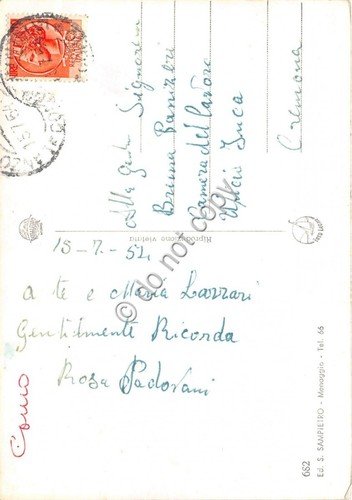 Alla gent. Signorina
Bruna Panizzeri
Camera del Lavoro
Ufficio Inca
Cremona
Riproduzione Vietata
15-7-54
A te e Maria Lazzari
Gentilmente Ricorda
Rosa Padovani
Como
682
Ed. S. SAMPIETRO - Menaggio - Tel. 65
do not copy